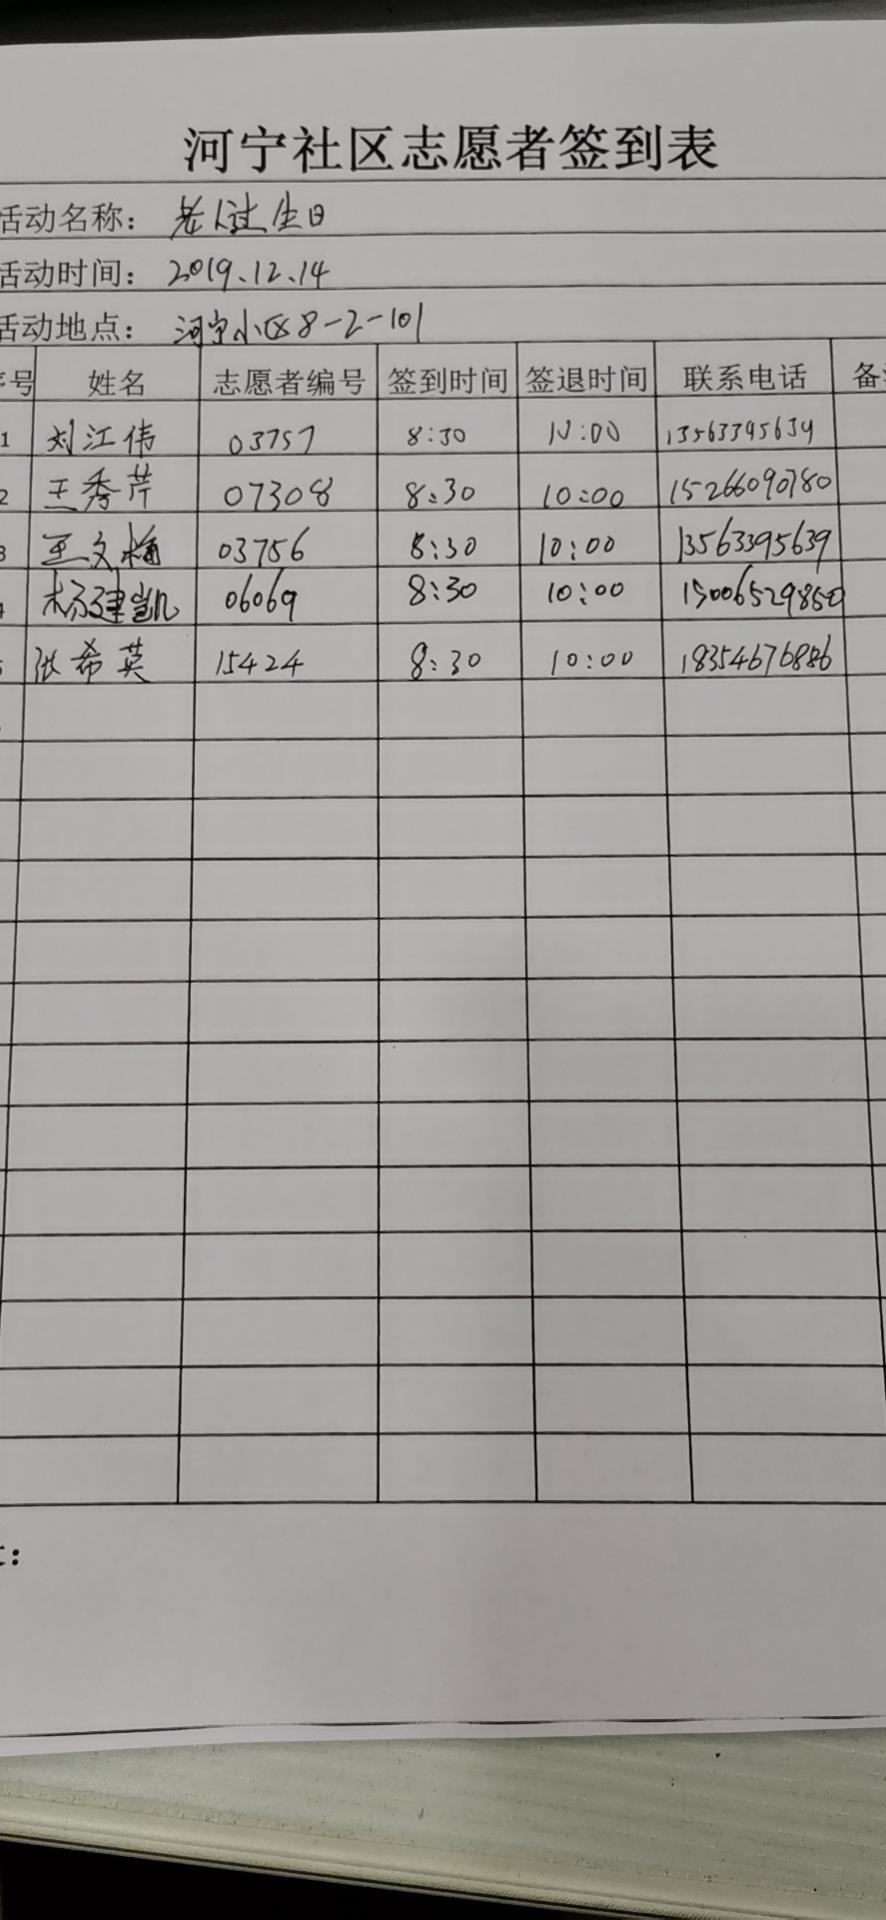 河宁社区志愿者签到表
活动名称： 老人过生日
活动时间： 2019.12.14
活动地点： 河宁小区8-2-101
序号 姓名 志愿者编号 签到时间 签退时间 联系电话 备
1 刘江伟 03757 8:30 10:00 13563395639
2 王秀芹 07308 8:30 10:00 15266090780
3 王文梅 03756 8:30 10:00 13563395639
4 杨建凯 06069 8:30 10:00 15006529850
5 张希英 15424 8:30 10:00 18354676886
：